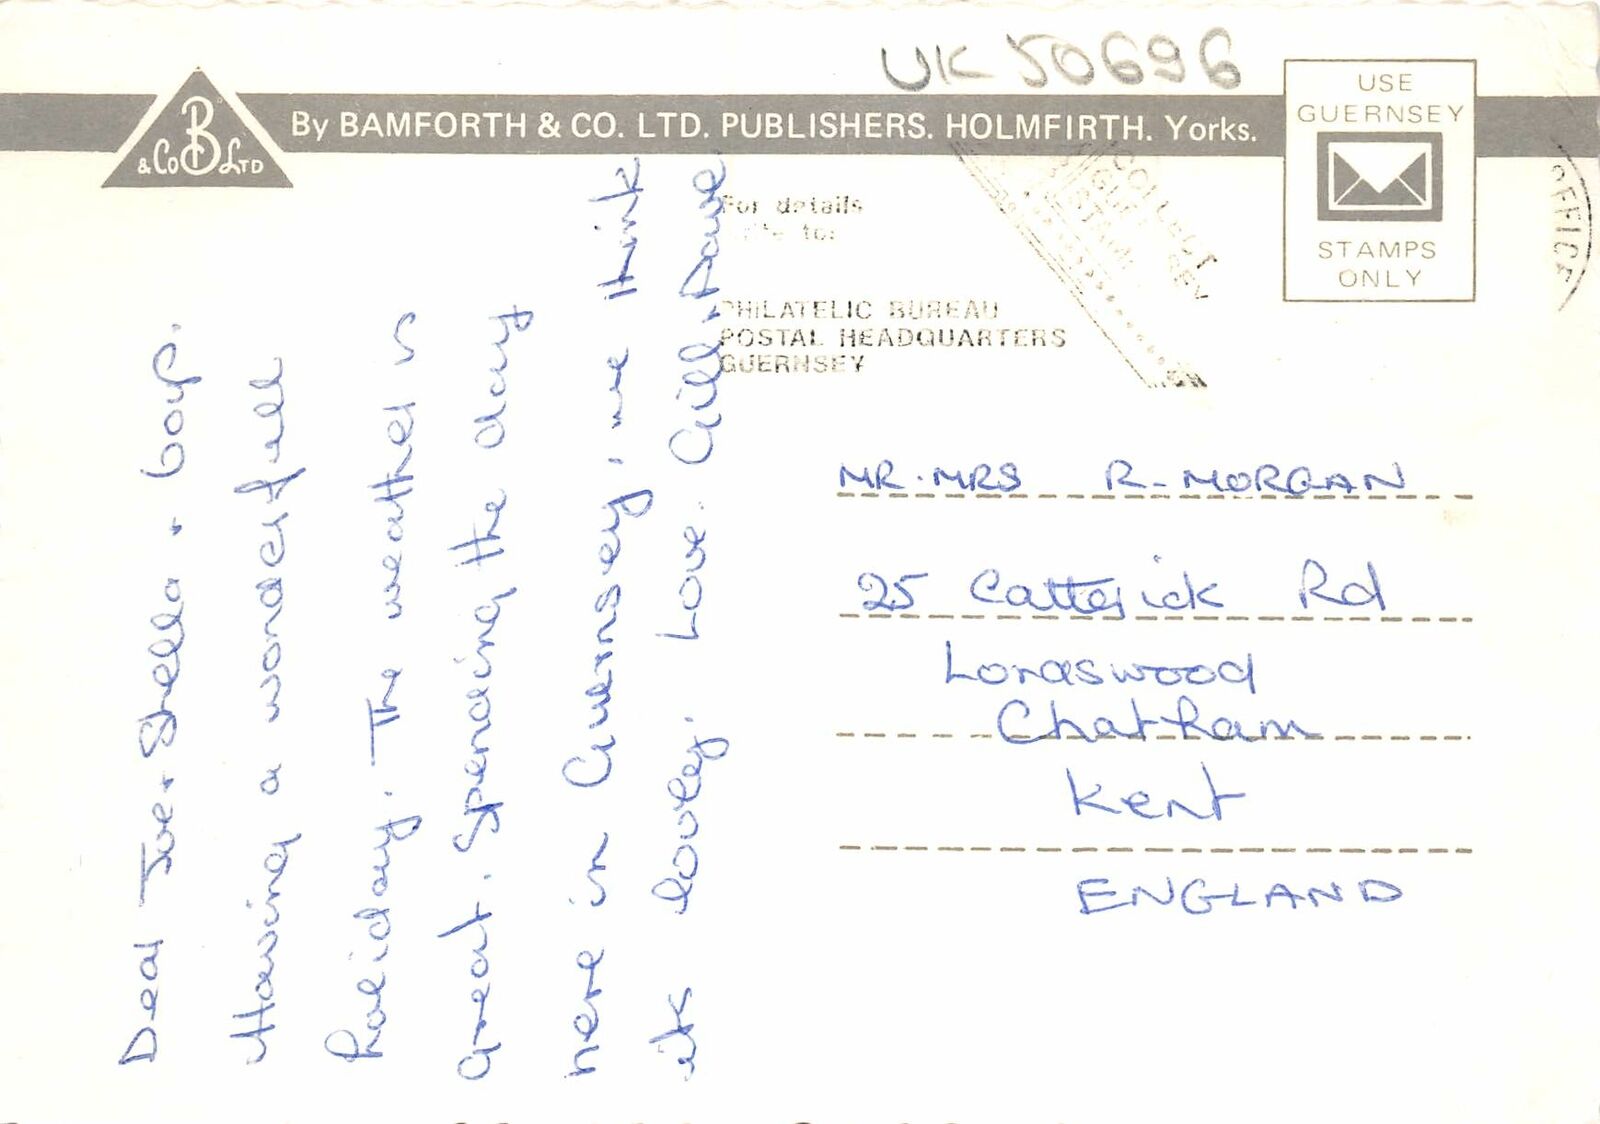 UK 50696
B
& Co LTD
By BAMFORTH & CO. LTD. PUBLISHERS. HOLMFIRTH. Yorks.
USE
GUERNSEY
STAMPS
ONLY
OFFICE
For details
to:
PHILATELIC BUREAU
POSTAL HEADQUARTERS
GUERNSEY
COLLECT
Dear Joe + Shella + boys.
Having a wonderfull
holiday. The weather is
great. Spending the day
here in Guernsey, we think
its lovely. Love. Gill + Dave
MR. MRS R- MORGAN
25 Catterick Rd
Lordswood
Chatham
Kent
ENGLAND